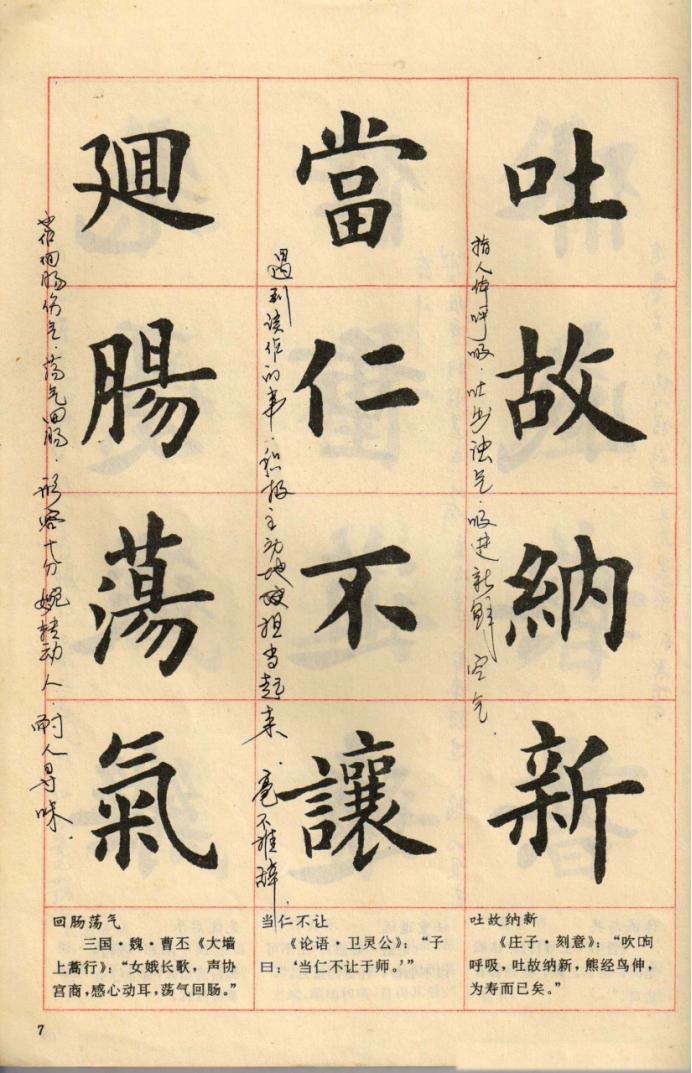 吐故納新
指人体呼吸.吐出浊气.吸进新鲜空气.
當仁不讓
遇到该作的事.积极主动地担当起来.毫不推辞.
廻腸蕩氣
荡气回肠.形容十分婉转动人.耐人寻味.
回肠荡气
三国·魏·曹丕《大墙
上蒿行》：“女娥长歌，声协
宫商，感心动耳，荡气回肠。”
当仁不让
《论语·卫灵公》：“子
曰：‘当仁不让于师。’”
吐故纳新
《庄子·刻意》：“吹呴
呼吸，吐故纳新，熊经鸟伸，
为寿而已矣。”
7